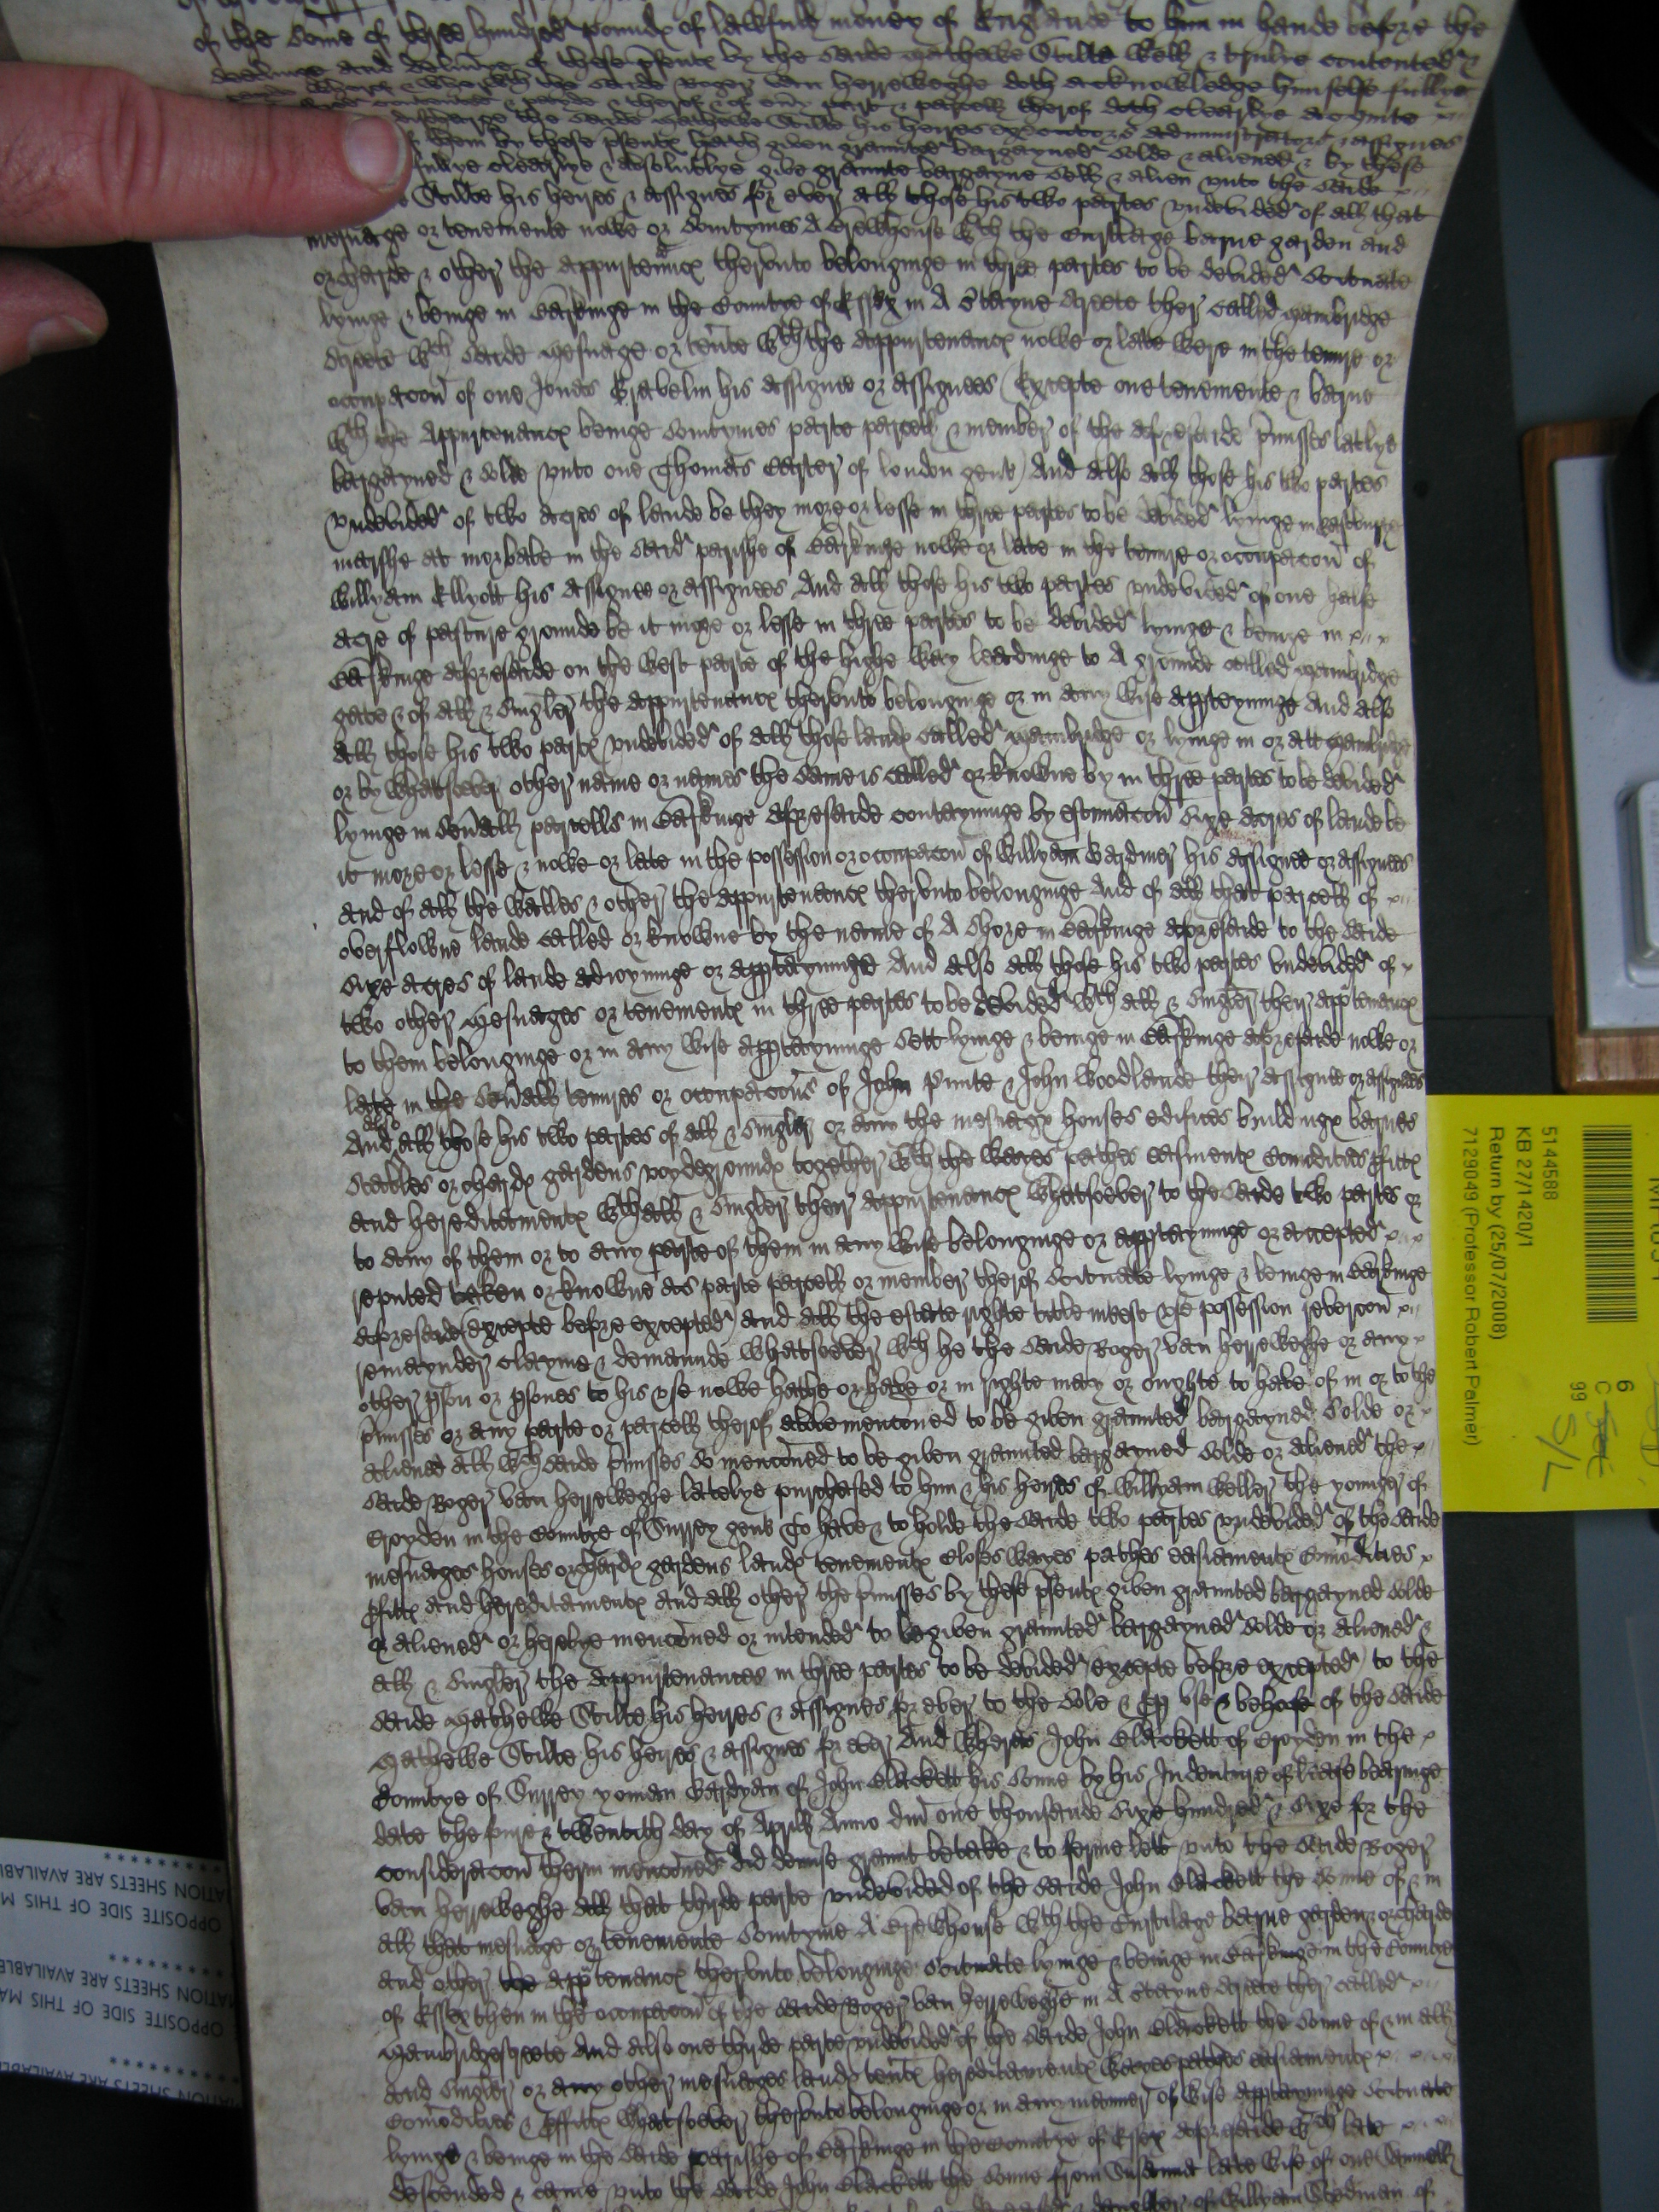 of the Some of three hundred poundx of lawfull money of Englande to him in hande before the
and deliverie of these psentx by the saide Mathewe Stilte well & trulye contented &
the saide Roger van herreweghe doth acknowledge himselfe fullye
& therof & of every parte & parcell therof doth clearlye acquite
discharge the saide Mathewe Stilte his heires executors administrators & assignes
them by these psentx hath given graunted bargayned solde & aliened & by these
fullye clearlye & absolutlye give graunte bargayne sell & alien unto the saide
Stilte his heires & assignes for ever all those his two partes undevided of all that
mesuage or tenemente nowe or somtymes A Brewhouse wth the Curtilage barne garden and
orcharde & other the appurtennčx therunto belonginge in three partes to be devided Scituate
lyinge & beinge in Barkinge in the Countye of Essex in A Streete ther called Hambridge
streete wch saide Mesuage or tente wth the appurtenancx nowe or late were in the tenure or
occupacon of one Jonas Gravelin his assignee or assignees (Excepte one tenemente & barne
wth the Appurtenancx beinge somtymes parte parcell & member of the aforesaide pmisses latlye
bargayned & solde unto one Thomas Carter of london gent) And also all those his two partes
undevided of two acres of lande be they more or lesse in three partes to be devided lyinge in
marshe at in the said parishe of Barkinge nowe or late in the tenure or occupacon of
Willyam Ellyott his assignee or assignees And all those his two partes undevided of one halfe
acre of pasture grounde be it more or lesse in three partes to be devided lyinge & beinge in
Barkinge aforesaide on the west parte of the highe way leadinge to A grounde called Hambridge
gate & of all & singler the appurtenancx therunto belonginge or in any wise appteyninge And also
all those his two partx undevided of all those landx called Hambridge or lyinge in or att Hambridge
or by whatsoever other name or names the same is called or knowne by in three partes to be devided
lyinge in sevall parcells in Barkinge aforesaide contayninge by estimacon Sixe acres of lande be
it more or lesse & nowe or late in the possession or occupacon of Willyam his assignee or assignees
and of all the walles & other the appurtenancx therunto belonginge And of all that parcell of
overflowne lande called or knowne by the name of A Shore in Barkinge aforesaide to the saide
Sixe acres of lande adioyninge or apptayninge And also all those his two partes undevided of
two other Mesuages or tenementx in three partes to be devided wth all & singler their apptenancx
to them belonginge or in any wise apptayninge sett lyinge & beinge in Barkinge aforesaide nowe or
late in the sevall tenures or occupacons of John & John Woodlande their assignee or assignees
And also all those his two partes of all & singler or any the mesuagx houses edifices buildingx barnes
Stables orchardx gardens voydegroundx together wth the wayes pathes easmentx Comodities pfittx
and hereditamentx wth all & singler their appurtenancx whatsoever to the saide two partes or
to any of them or to any parte of them in any wise belonginge or apptayninge or accepted
reputed taken or knowne as parte parcell or member therof Scituate lyinge & beinge in Barkinge
aforesaide (excepte before excepted) and all the estate righte title interest use possession revercon
remaynder clayme & demaunde whatsoever wch he the saide Roger van herreweghe or any
other pson or psones to his use nowe hathe or have or in righte may or oughte to have of in or to the
pmisses or any parte or parcell therof above menconed to be given graunted bargayned solde or
aliened all wch saide pmisses so menconed to be given graunted bargayned solde or aliened the
saide Roger van herreweghe latelye purchased to him & his heires of Willyam Weller the younger of
Croyden in the Countye of Surrey gent To have & to holde the saide two partes undevided of the saide
mesuages houses orchardx gardens landx tenementx Closes wayes pathes easiamentx Comodities
pfittx and hereditamentx and all other the pmisses by these psentx given graunted bargayned solde
or aliened or hereby menconed or intended to be given graunted bargayned solde or aliened &
all & singler the appurtenances in three partes to be devided (excepte before excepted) to the
saide Mathewe Stilte his heires & assignes for ever to the sole & pp use & behofe of the saide
Mathewe Stilte his heires & assignes for ever And wheras John Clackett of Croyden in the
Countye of Surrey yoman Gardyan of John Clackett his sonne by his Indenture of lease bearinge
date the & twentith day of Aprill Anno dni one thousande Sixe hundred & Sixe for the
consideracon therin menconed did demise graunt betake & to ferme lett unto the saide Roger
van herreweghe all that thirde parte undevided of the saide John Clackett the sonne of & in
all that mesuage or tenemente somtyme A Brewhouse wth the Curtilage barne garden orcharde
and other the apptenancx therunto belonginge Scituate lyinge & beinge in Barkinge in the Countye
of Essex then in the occupacon of the saide Roger van herreweghe in A Streete ther called
Hambridgestreete And also one thirde parte undevided of the saide John Clackett the sonne of & in all
and singler or any other mesuages landx tentx hereditamentx wayes pathes easiamentx
Comodities & pffittx whatsoever therunto belonginge or in any manner of wise apptayninge Scituate
lyinge & beinge in the saide parishe of Barkinge in the Countye of Essex aforesaide wch late
descended & came unto the saide John Clackett the sonne from Susanna late wife of one
of Willyam of
5144588
KB 27/1420/1
Return by (25/07/2008)
7129049 (Professor Robert Palmer)
6
C
99
S/L
OPPOSITE SIDE OF THIS MA
ATION SHEETS ARE AVAILABL
OPPOSITE SIDE OF THIS MA
MATION SHEETS ARE AVAILABLE